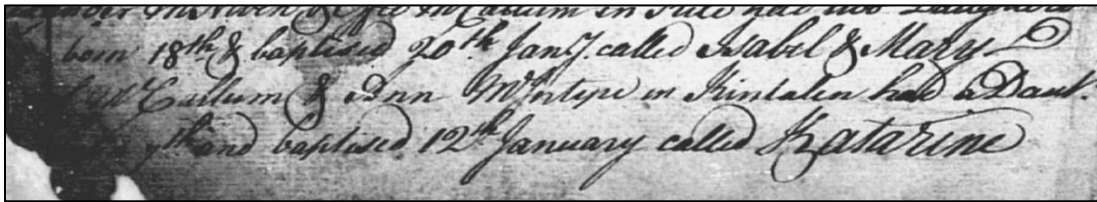 McCallum in had two Daughters
born 18th & baptised 20th Jany. called Isabel & Mary
McCallum & Ann McIntyre in Kintalen had a Daut.
7th and baptised 12th January called Katarine